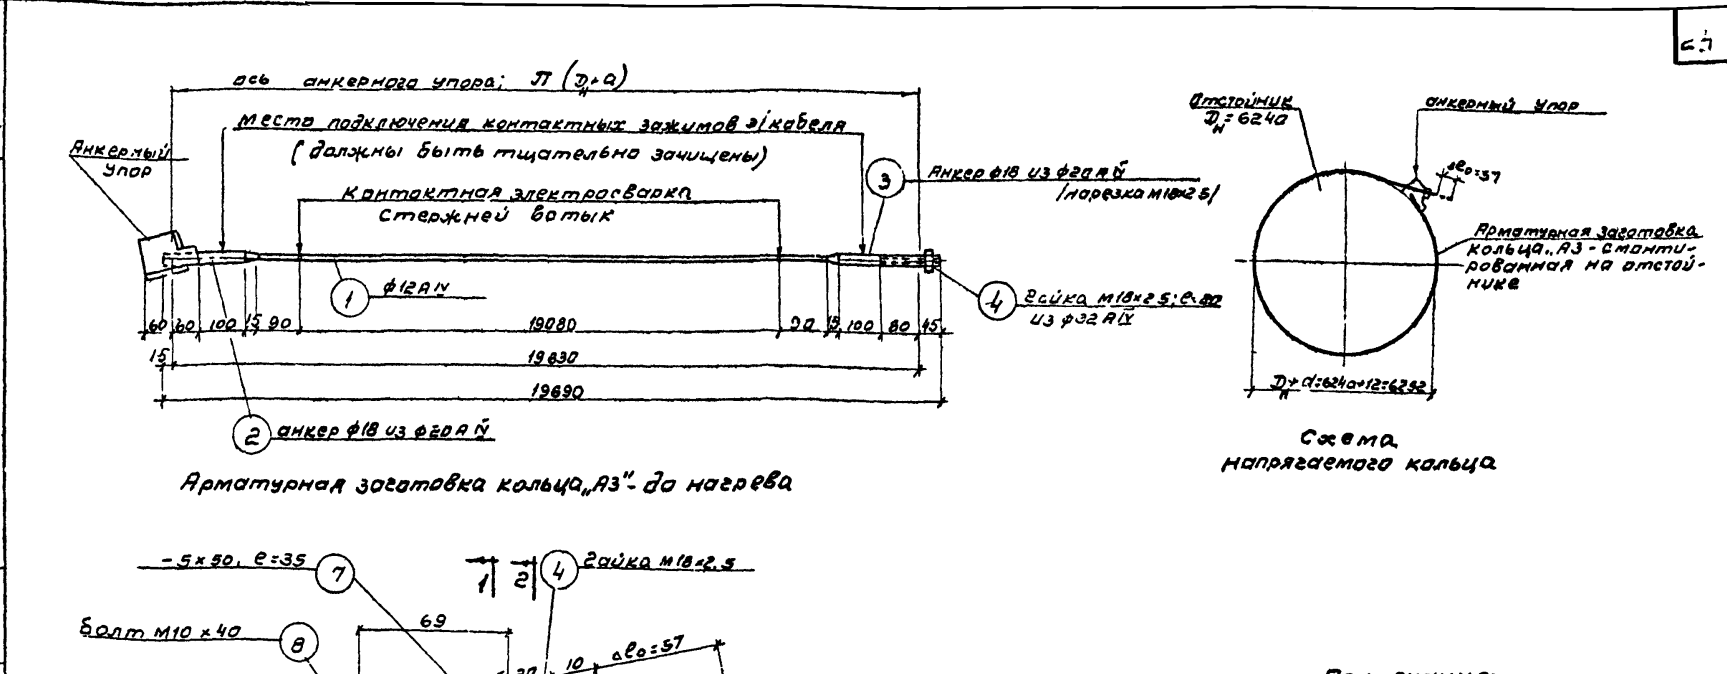 ось анкерного упора; π (Dн+d)
место подключения контактных зажимов эл кабеля
(должны быть тщательно зачищены)
Анкерный
упор
Контактная электросварка
стержней встык
3
Анкер ф18 из ф20АIV
/нарезка М18×2.5/
1
ф12АIV
4
Гайка М18×2.5; е=80
из ф32АIV
60 60 100 15 90 19080 90 15 100 80 45
15 19630
19690
2
анкер ф18 из ф20АIV
Арматурная заготовка кольца „А3"- до нагрева
Отстойник
Dн=6240
анкерный упор
Δℓо=57
Арматурная заготовка
кольца „А3 - смонти-
рованная на отстой-
нике
Dн+d=6240+12=6252
Схема
напрягаемого кольца
-5×50, е=35
7
1 2
4
Гайка М18×2.5
Болт М10×40
8
69
10
Δℓо=57